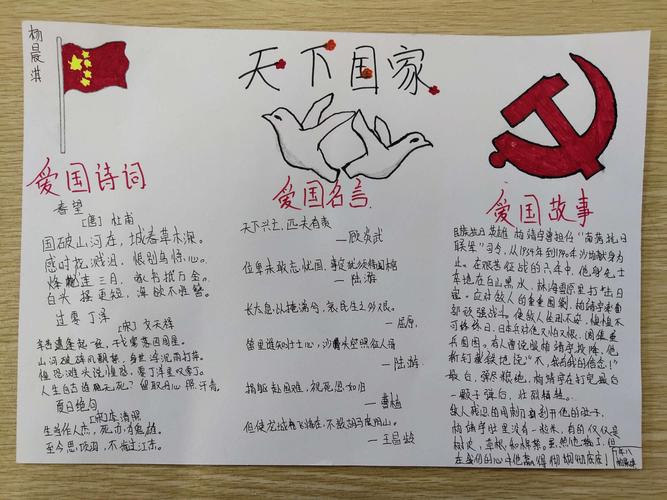 杨晨淇
天下国家
爱国诗词
春望
[唐] 杜甫
国破山河在，城春草木深。
感时花溅泪，恨别鸟惊心。
烽火连三月，家书抵万金。
白头搔更短，浑欲不胜簪。
过零丁洋
[宋] 文天祥
辛苦遭逢起一经，干戈寥落四周星。
山河破碎风飘絮，身世浮沉雨打萍。
惶恐滩头说惶恐，零丁洋里叹零丁。
人生自古谁无死？留取丹心照汗青。
夏日绝句
[宋] 李清照
生当作人杰，死亦为鬼雄。
至今思项羽，不肯过江东。
爱国名言
天下兴亡，匹夫有责
—顾炎武
位卑未敢忘忧国，事定犹须待阖棺
—陆游
长太息以掩涕兮，哀民生之多艰。
—屈原
位卑
—陆游
捐躯赴国难，视死忽如归
—曹植
但使龙城飞将在，不教胡马度阴山。
—王昌龄
爱国故事
民族抗日英雄 杨靖宇曾担任"南满抗日
联军"司令，从1934年到1940年
上。在艰苦征战的六年中，他身先士
卒地在白山黑水，林海雪原里打击日
寇。在对敌人的重重围剿，杨靖宇率
部顽强战斗。使敌人坐卧不安，惶惶不
可终日，日本兵对他又怕又恨，因
兵围困。有人曾说服杨靖宇投降，他
斩钉截铁地说"不，我有我的信念！"
最后，弹尽粮绝，杨靖宇在打完最后
一颗子弹后，壮烈牺牲。
敌人残忍的用刺刀割开他的肚子，
杨靖宇肚里没有一粒米，有的仅仅是
树皮，草根和棉絮。虽然他牺牲了，但
在我们的心中他